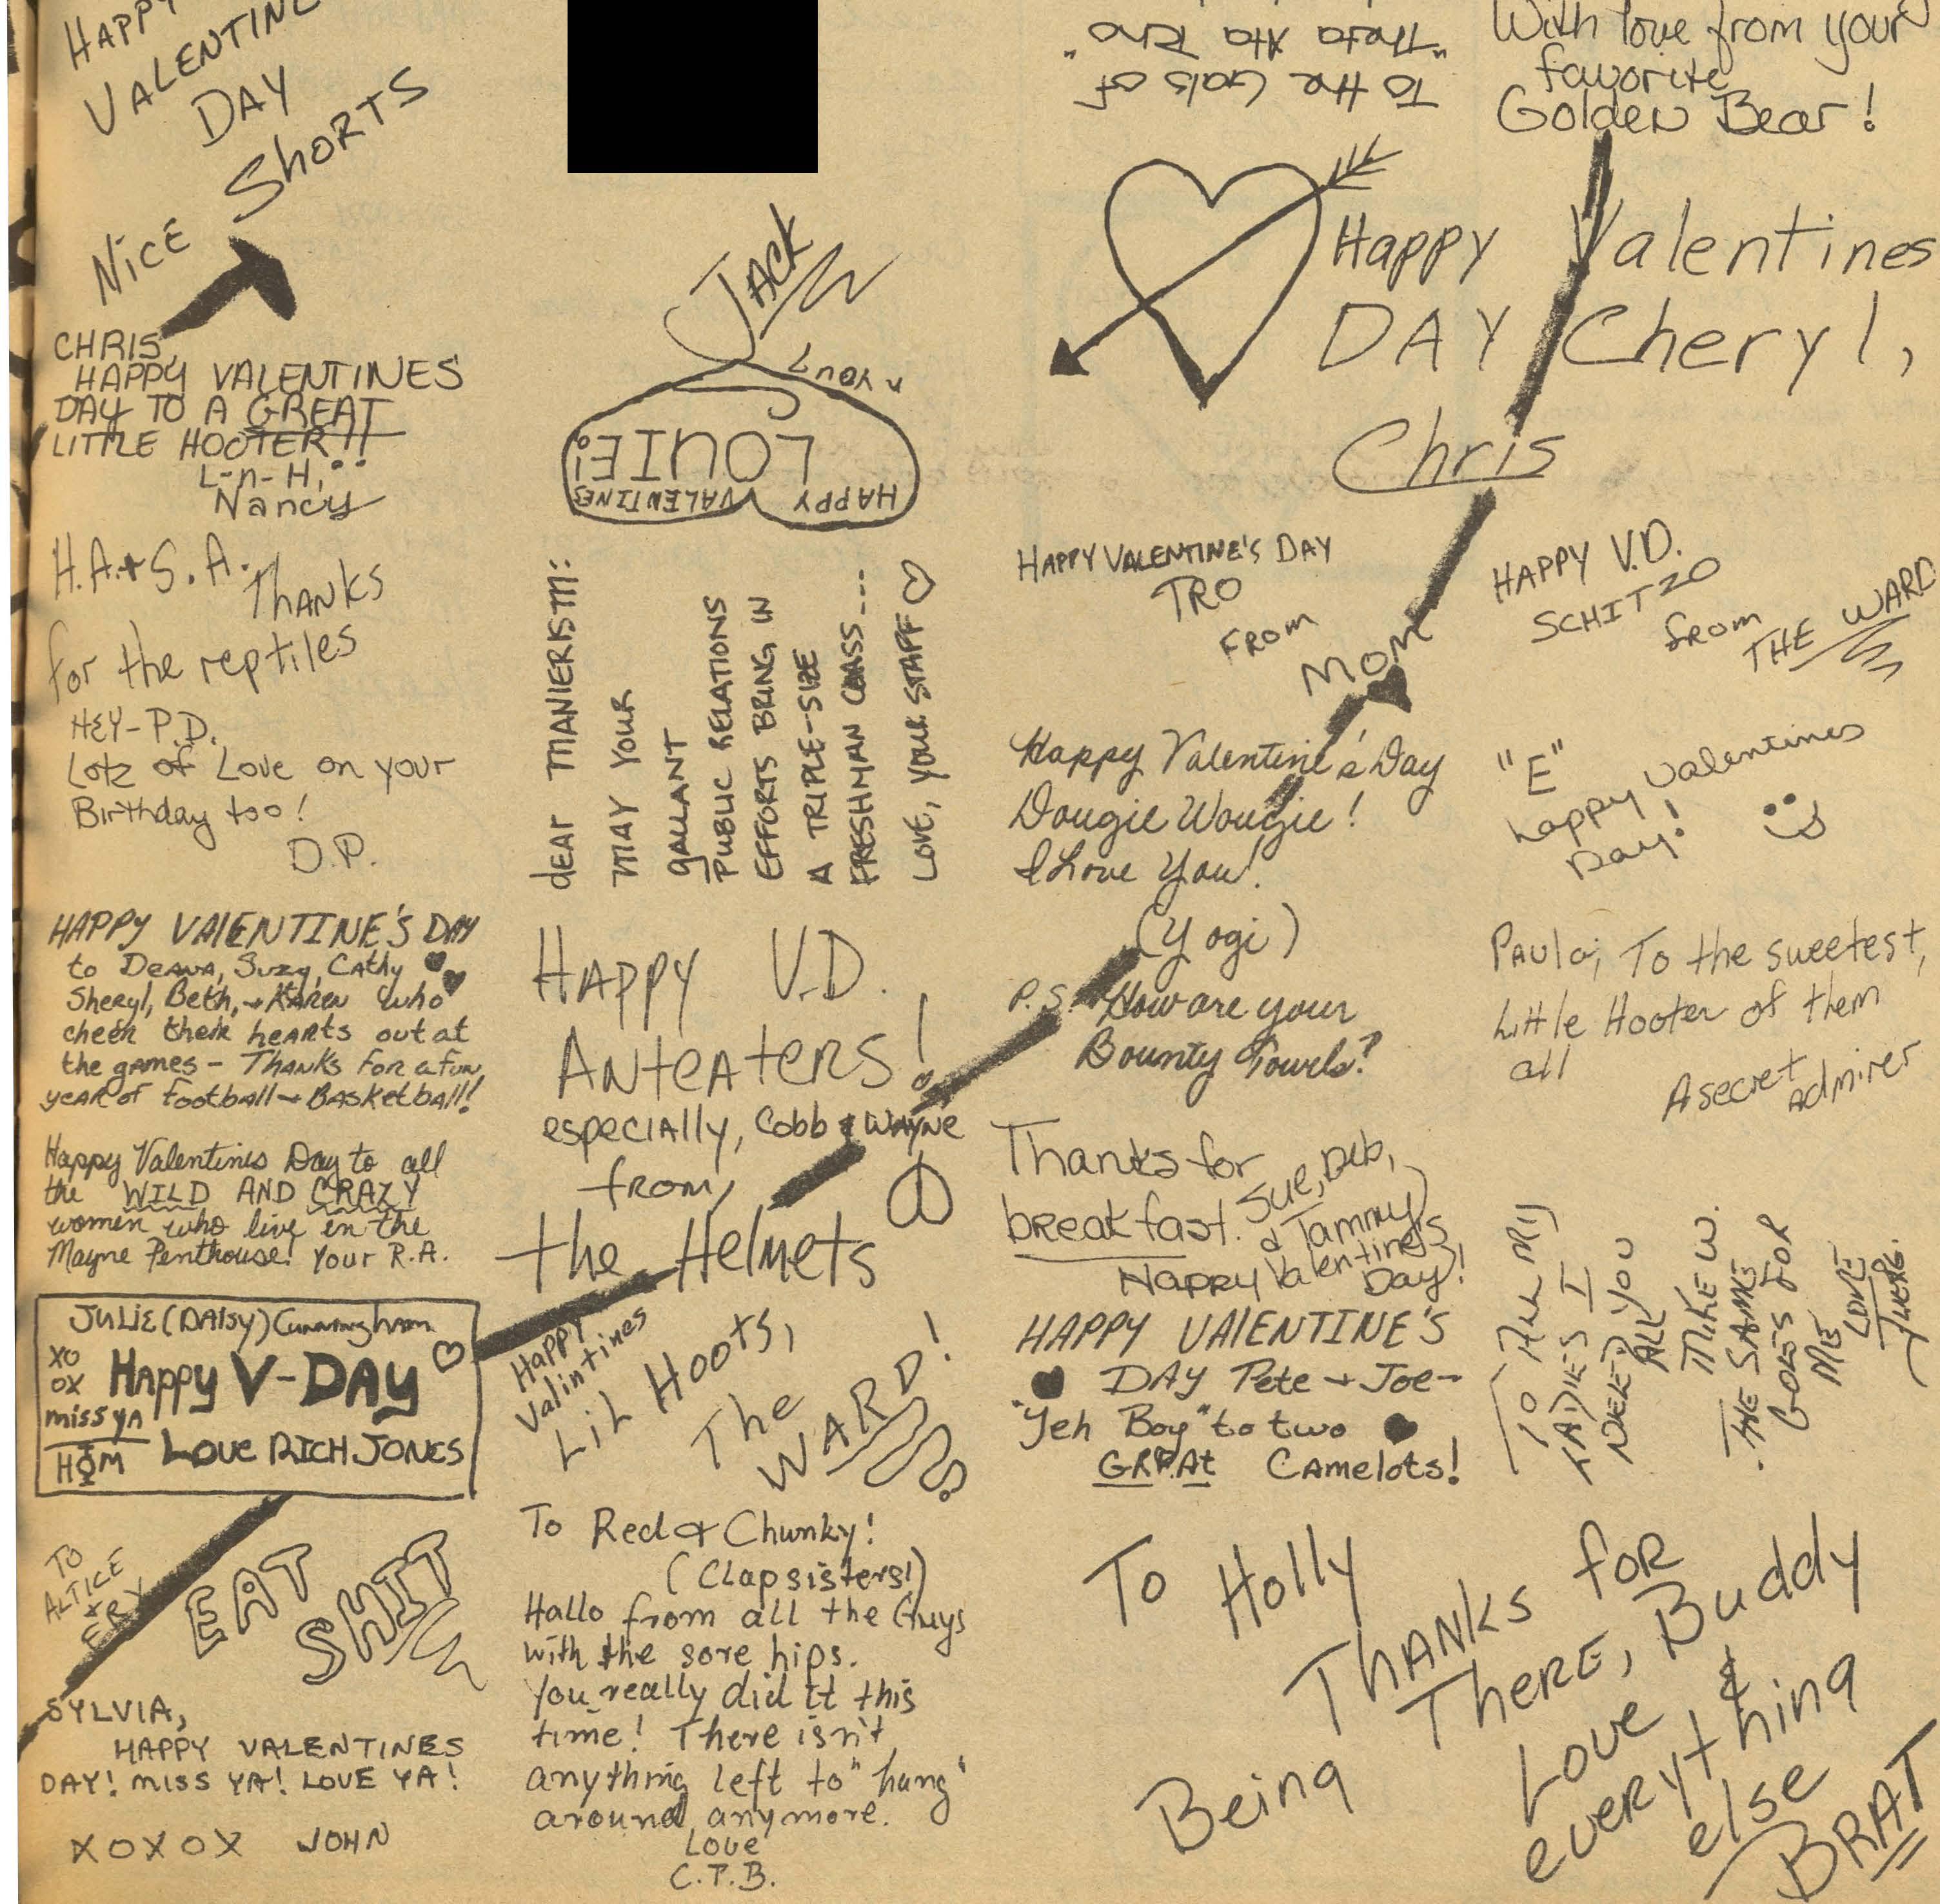 HAPPY
VALENTINE
DAY
NiCE SHORTS
CHRIS,
HAPPY VALENTINES
DAY TO A GREAT
LITTLE HOOTER!!
L-n-H,
Nancy
H.A.+S.A.
THANKS
for the reptiles
HEY-P.D.
Lotz of Love on your
Birthday too!
D.P.
HAPPY VALENTINE'S DAY
to DEANA, Suzy, Cathy
Sheryl, Beth, + KAREN who
cheer their hearts out at
the games - THANKS FOR a fun
year of football + BASKETball!
Happy Valentines Day to all
the WILD AND CRAZY
women who live in the
Mayne Penthouse! Your R.A.
JULIE (DAISY) Cunningham
XO
OX
Happy V-DAY
miss ya
LOVE RICH JONES
TO
ALTICE
+
ERY
EAT
SHIT
SYLVIA,
HAPPY VALENTINES
DAY! MISS YA! LOVE YA!
XOXOX JOHN
HAPPY VALENTINES
LOUIE!
n you?
JACK
dear manierism:
may your
gallant
Public Relations
Efforts Bring in
A Triple-Size
Freshman Class---
Love, your staff
HAPPY V.D.
ANTEATERS!
especially, Cobb & WAYNE
from,
the Helmets
Happy
Valintines
LiL Hoots,
The
WARD!
To Red & Chunky!
(Clapsisters!)
Hallo from all the Guys
with the sore hips.
You really did it this
time! There isn't
anything left to "hang"
around anymore.
Love
C.P.B.
To the Gals of
"Theta Ata Rho"
With love from your
favorite
Golden Bear!
Happy Valentines
DAY Cheryl,
Chris
HAPPY VALENTINE'S DAY
TRO
FROM
MOM
HAPPY V.D.
SCHITZO
from
THE WARD
Happy Valentine's Day
Dougie Wougie!
I Love You!
(Yogi)
P.S. How are your
Bounty Towels?
"E"
happy valentines
Day!
Paula, To the sweetest,
Little Hooter of them
all
A secret
admirer
Thanks for
breakfast. Sue, Deb,
& Tammy
Happy Valentine's
Day!
HAPPY VALENTINE'S
DAY Pete + Joe-
"Yeh Boy" to two
GREAt Camelots!
TO ALL MY
LADIES I
NEED YOU
ALL
MIKE W.
THE SAME
GOES FOR
ME
LOVE
To Holly
THANKS for
Being THERE, Buddy
Love &
everything
else
BRAT